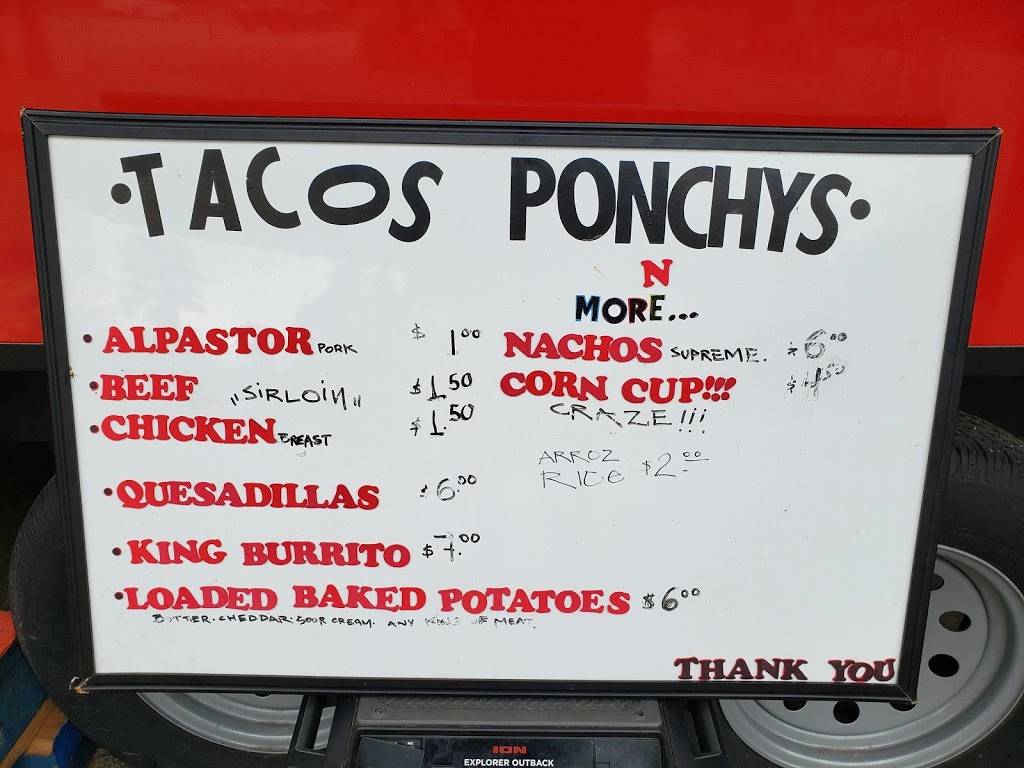 ·TACOS PONCHYS·
N
MORE...
·ALPASTOR PORK $ 1.00
·BEEF "SIRLOIN" $1.50
·CHICKEN BREAST $1.50
·QUESADILLAS $6.00
·KING BURRITO $7.00
·LOADED BAKED POTATOES $6.00
BUTTER. CHEDDAR. SOUR CREAM. ANY KIND OF MEAT.
NACHOS SUPREME. $6.00
CORN CUP!!! $4.50
CRAZE!!!
ARROZ
RICE $2.00
THANK YOU
ION
EXPLORER OUTBACK